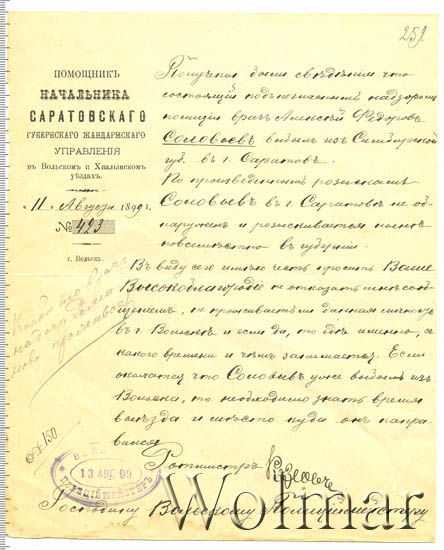 259.
ПОМОЩНИКЪ
НАЧАЛЬНИКА
САРАТОВСКАГО
ГУБЕРНСКАГО ЖАНДАРМСКАГО
УПРАВЛЕНІЯ
въ Вольскомъ и Хвалынскомъ
уѣздахъ.
"11" Августа 1899 г.
№ 423
г. Вольскъ.
Получены были свѣдѣнія что
состоящій подъ негласнымъ надзоромъ
полиціи врачъ Алексѣй Ѳедоровъ
Соловьевъ выбылъ изъ Симбирской
губ. въ г. Саратовъ.
По произведеннымъ розыскамъ
Соловьевъ въ г. Саратовѣ не об-
наруженъ и розыскивается нынѣ
повсемѣстно въ губерніи.
Въ виду сего имѣю честь просить Ваше
Высокоблагородіе не отказать мнѣ сооб-
щеніемъ, не проживаетъ ли данная личность
въ г. Вольскѣ и если да, то гдѣ именно, съ
какого времени и чѣмъ занимается. Если
окажется что Соловьевъ уже выбылъ изъ
Вольска, то необходимо знать время
выѣзда и мѣсто куда онъ напра-
вился
Ротмистръ
13 АВГ. 99
ПОЛИЦІЙМЕЙСТЕРЪ
Господину Вольскому Полиціймейстеру
Wolmar